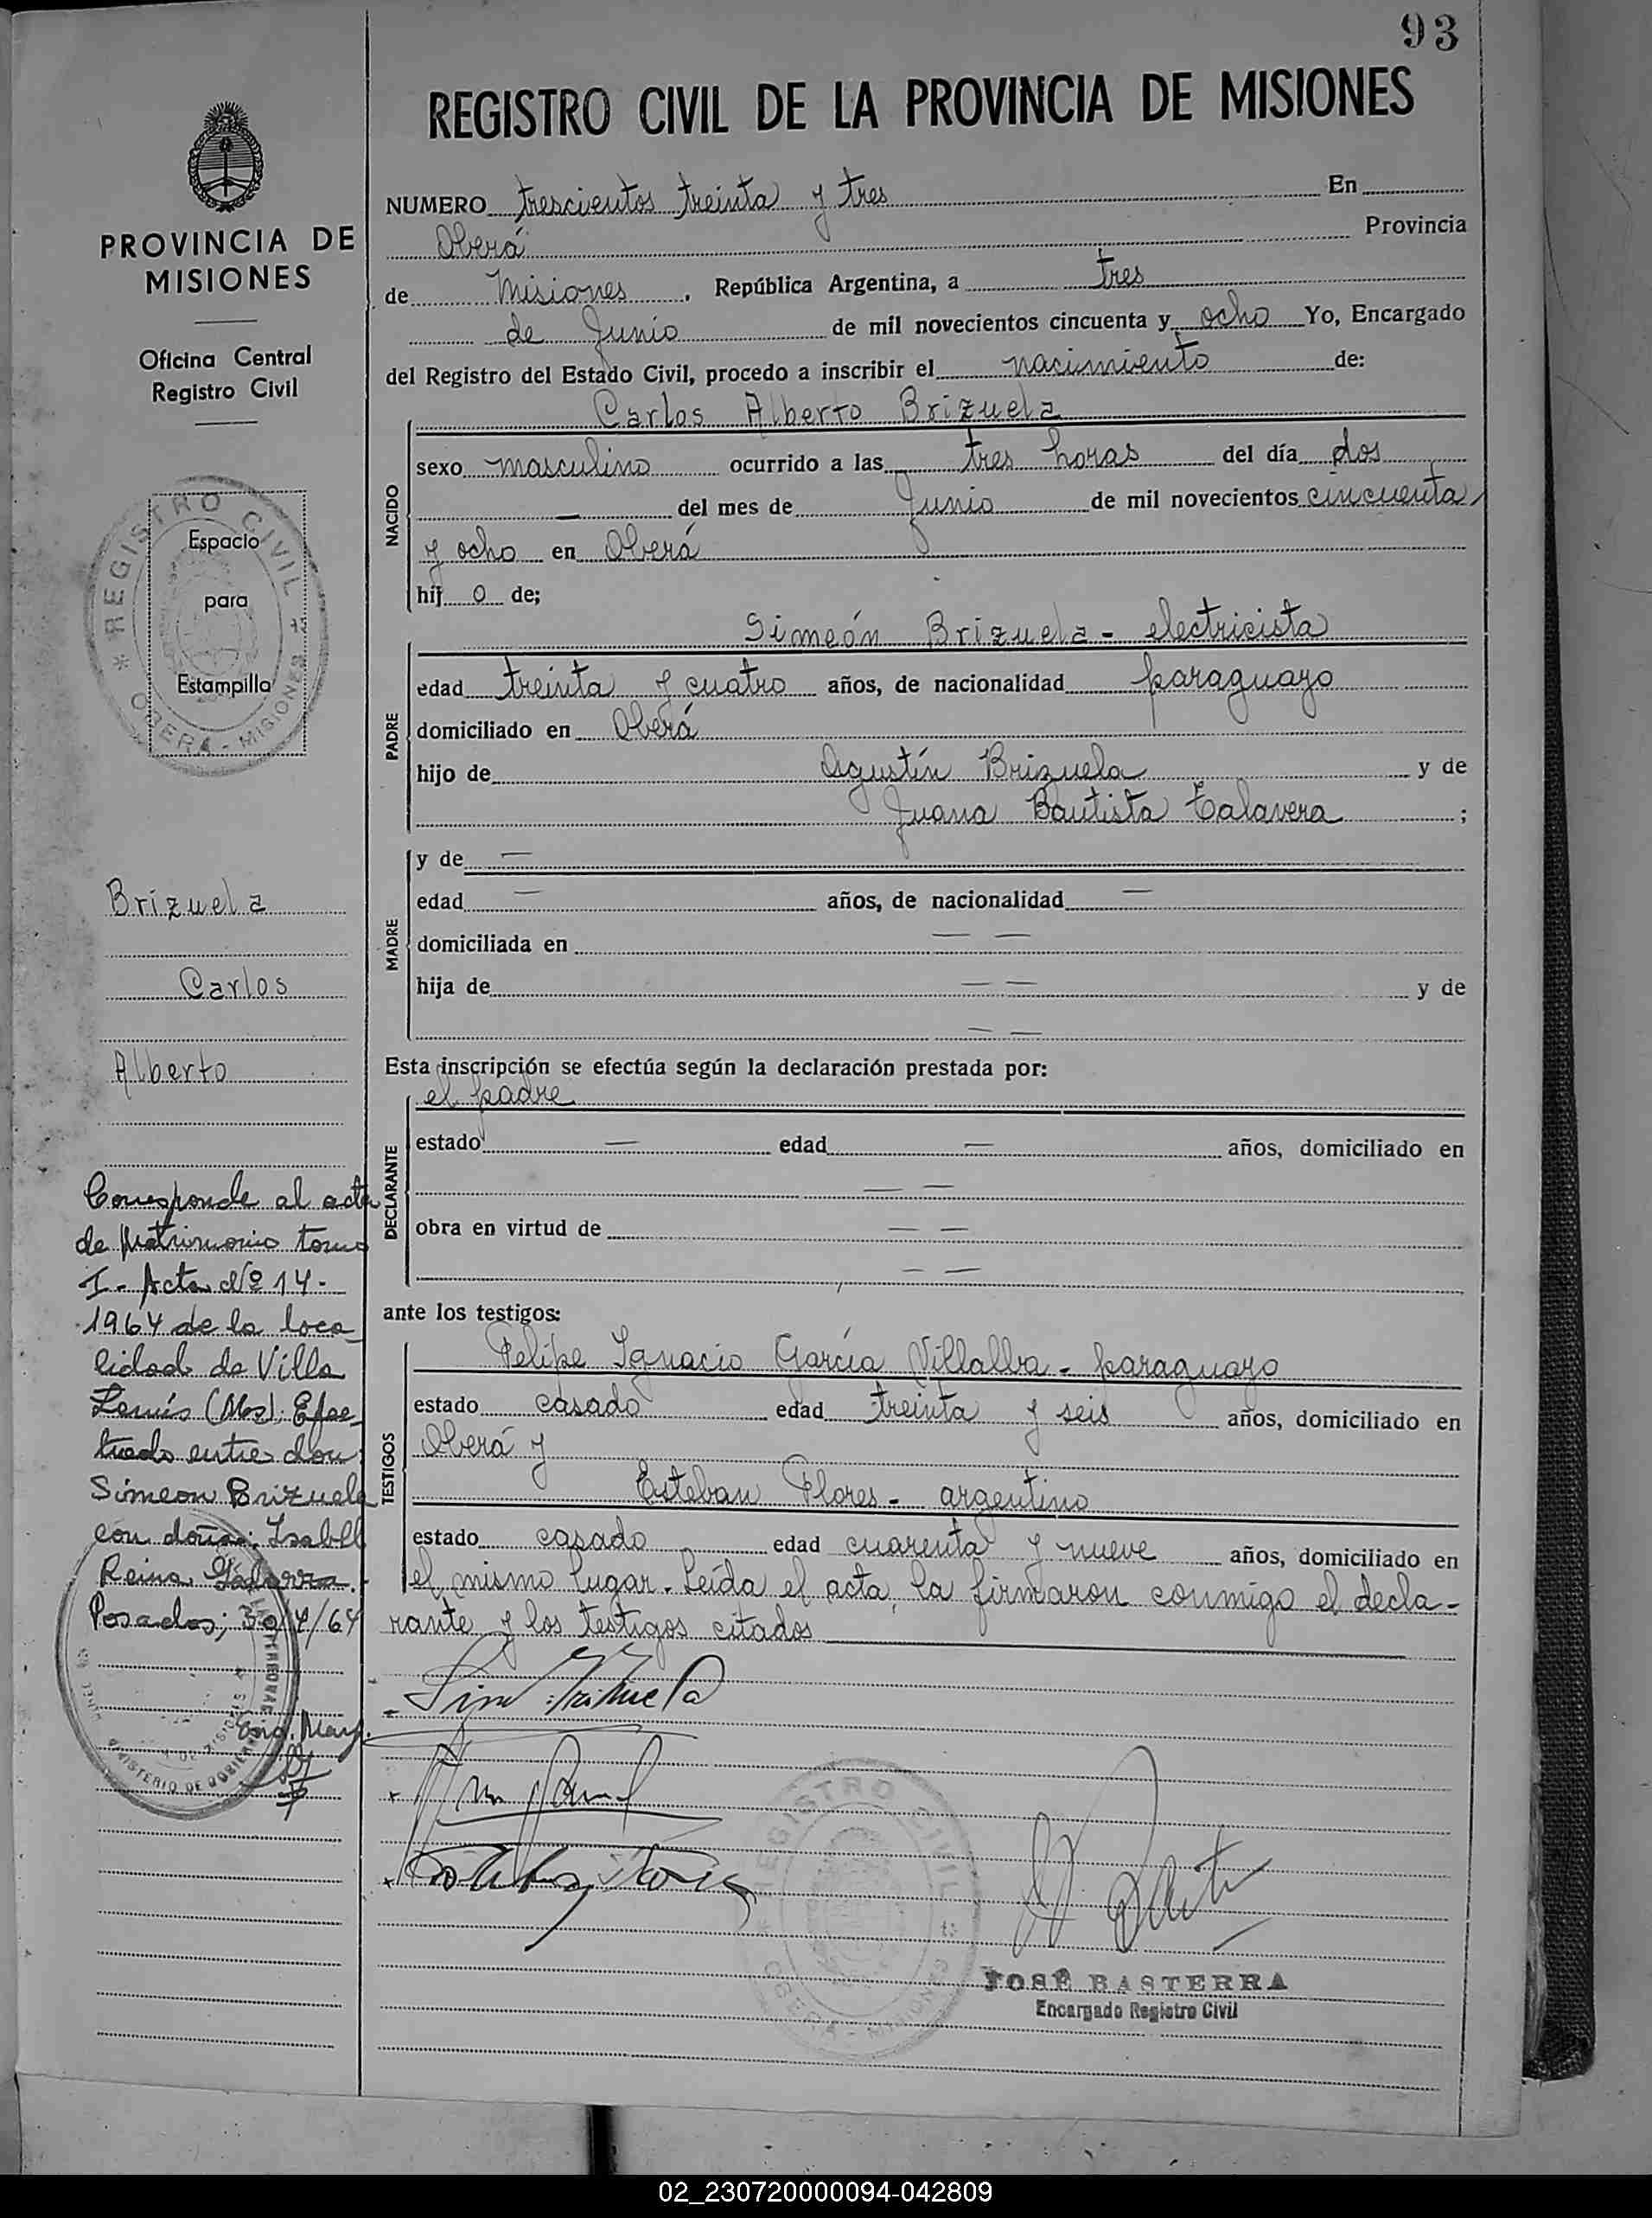 93
REGISTRO CIVIL DE LA PROVINCIA DE MISIONES
PROVINCIA DE
MISIONES
Oficina Central
Registro Civil
REGISTRO CIVIL
OBERA - MISIONES
Espacio
para
Estampilla
Brizuela
Carlos
Alberto
Corresponde al acta
de Matrimonio tomo
I - Acta Nº 14 -
1964 de la loca
lidad de Villa
Lanús (Mns). Efec
tuado entre don
Simeon Brizuela
con doña: Isabel
Reina
Posadas; 30/4/64
MINISTERIO DE GOBIERNO
NUMERO trescientos treinta y tres En
Oberá Provincia
de Misiones, República Argentina, a tres
de Junio de mil novecientos cincuenta y ocho Yo, Encargado
del Registro del Estado Civil, procedo a inscribir el nacimiento de:
Carlos Alberto Brizuela
NACIDO
sexo masculino ocurrido a las tres horas del día dos
— del mes de Junio de mil novecientos cincuenta
y ocho en Oberá
hij o de;
Simeón Brizuela - electricista
PADRE
edad treinta y cuatro años, de nacionalidad paraguayo
domiciliado en Oberá
hijo de Agustín Brizuela y de
Juana Bautista Talavera ;
MADRE
y de —
edad — años, de nacionalidad —
domiciliada en — —
hija de — — y de
— —
Esta inscripción se efectúa según la declaración prestada por:
el padre
DECLARANTE
estado — edad — años, domiciliado en
— —
obra en virtud de — —
— —
ante los testigos:
Felipe Ignacio García Villalba - paraguayo
TESTIGOS
estado casado edad treinta y seis años, domiciliado en
Oberá y
Esteban Flores - argentino
estado casado edad cuarenta y nueve años, domiciliado en
el mismo lugar. Leída el acta, la firmaron conmigo el decla-
rante y los testigos citados
REGISTRO CIVIL
OBERA - MISIONES
JOSÉ BASTERRA
Encargado Registro Civil
02_230720000094-042809